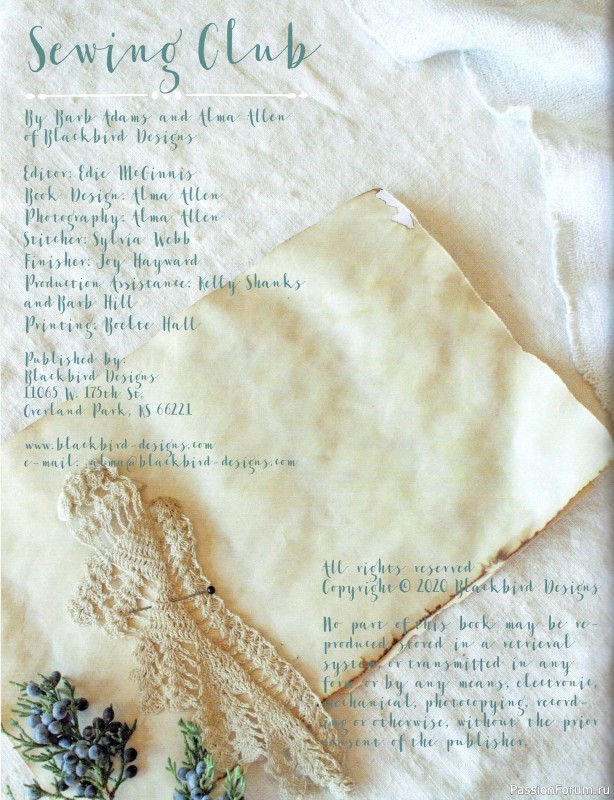 Sewing Club
By Barb Adams and Alma Allen
of Blackbird Designs
Editor: Edie McGinnis
Book Design: Alma Allen
Photography: Alma Allen
Stitcher: Sylvia Webb
Finisher: Joy Hayward
Production Assistance: Kelly Shanks
and Barb Hill
Printing: Boelte Hall
Published by:
Blackbird Designs
11065 W. 175th St.
Overland Park, KS 66221
www.blackbird-designs.com
e-mail: alma@blackbird-designs.com
All rights reserved
Copyright © 2020 Blackbird Designs
No part of this book may be re-
produced, stored in a retrieval
system, or transmitted in any
form or by any means, electronic,
mechanical, photocopying, record-
ing or otherwise, without the prior
consent of the publisher.
PassionForum.ru